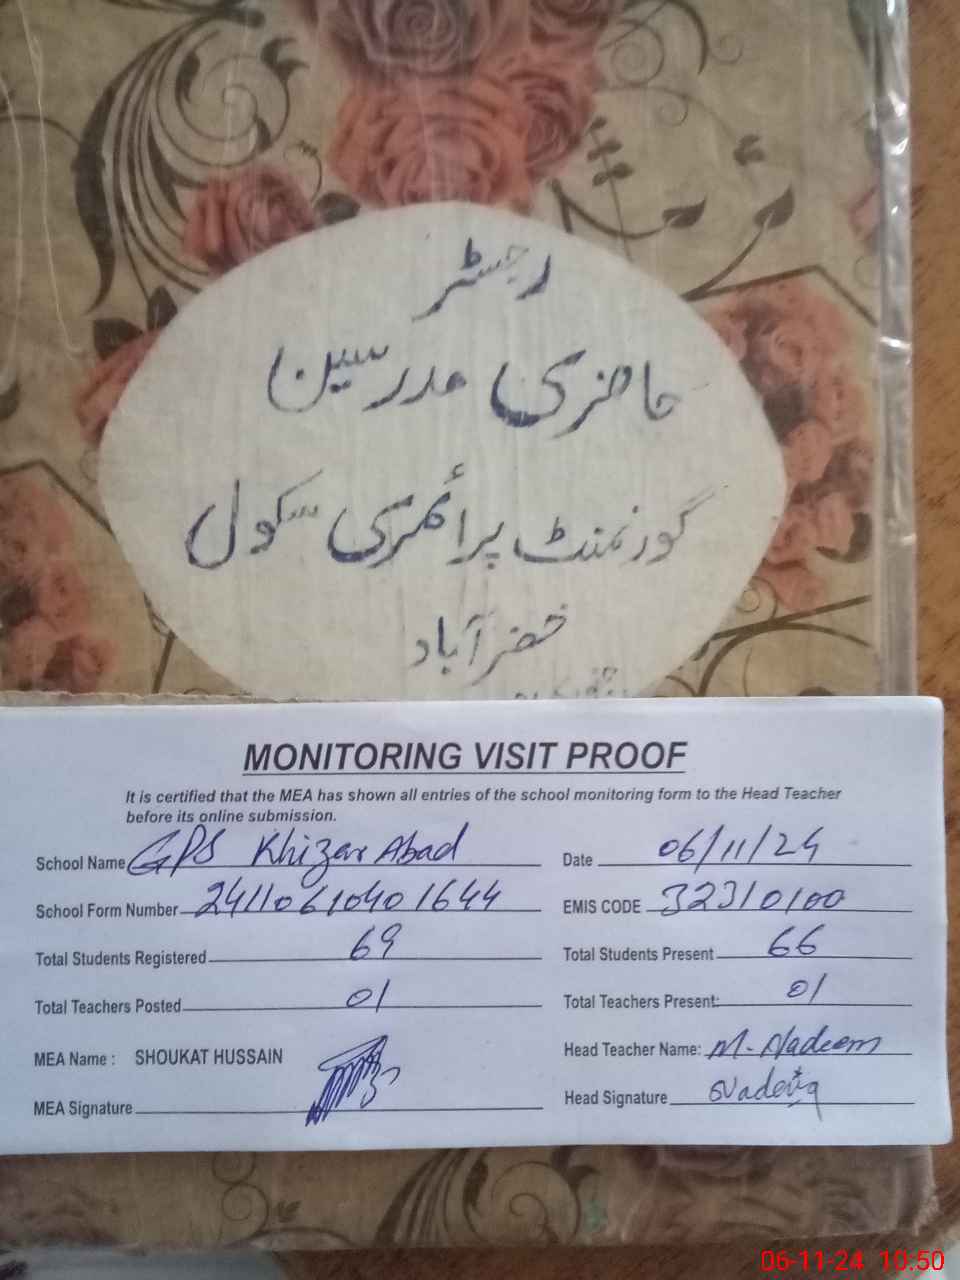 رجسٹر
حاضری مدرسین
گورنمنٹ پرائمری سکول
خضرآباد
MONITORING VISIT PROOF
It is certified that the MEA has shown all entries of the school monitoring form to the Head Teacher
before its online submission.
School Name GPS Khizar Abad
Date 06/11/24
School Form Number 24110610401644
EMIS CODE 32310100
Total Students Registered 69
Total Students Present 66
Total Teachers Posted 01
Total Teachers Present: 01
MEA Name : SHOUKAT HUSSAIN
Head Teacher Name: M. Nadeem
MEA Signature
Head Signature
06-11-24 10:50